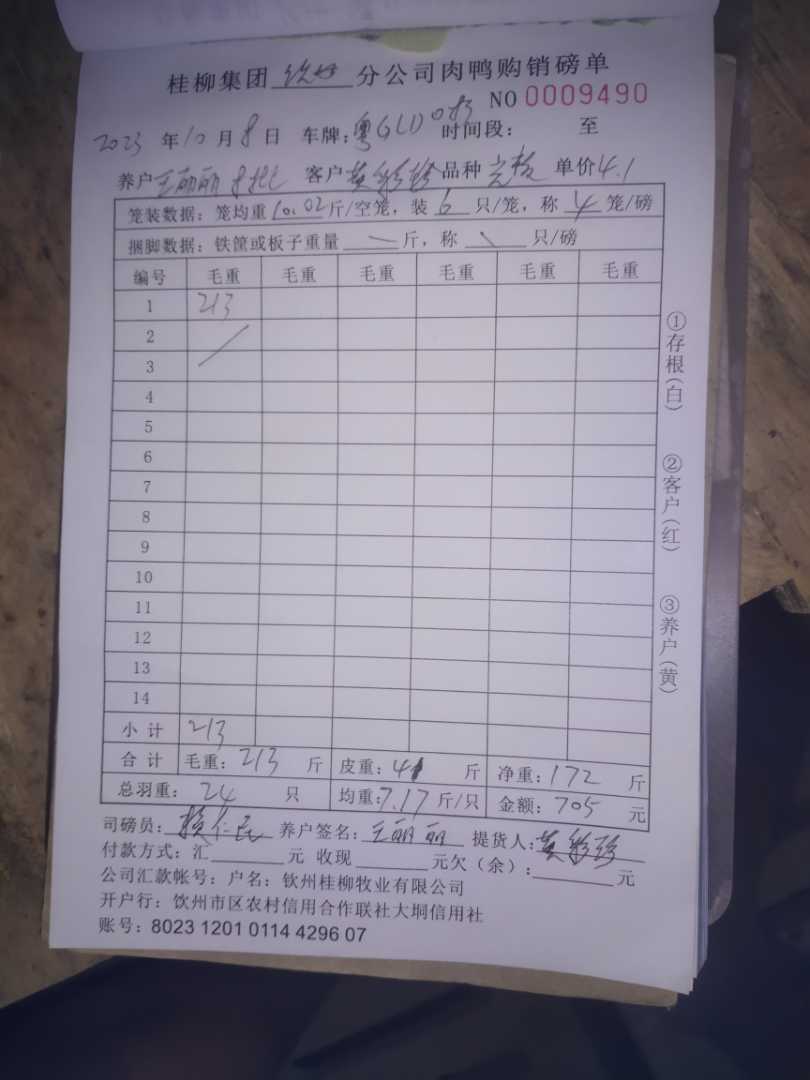 桂柳集团 钦州 分公司肉鸭购销磅单
NO 0009490
2023 年 10 月 8 日 车牌: 粤G 时间段: 至
养户 王丽丽 客户 黄彩珍 品种 单价 4.1
笼装数据: 笼均重 10.02 斤/空笼, 装 6 只/笼, 称 4 笼/磅
捆脚数据: 铁筐或板子重量 — 斤, 称 \ 只/磅
编号 毛重 毛重 毛重 毛重 毛重 毛重
1 213
2
3
4
5
6
7
8
9
10
11
12
13
14
小计 213
合计 毛重: 213 斤 皮重: 41 斤 净重: 172 斤
总羽重: 24 只 均重: 7.17 斤/只 金额: 705 元
司磅员: 养户签名: 王丽丽 提货人: 黄彩珍
付款方式: 汇 元 收现 元欠(余): 元
公司汇款帐号: 户名: 钦州桂柳牧业有限公司
开户行: 钦州市区农村信用合作联社大垌信用社
账号: 8023 1201 0114 4296 07
①存根(白)
②客户(红)
③养户(黄)